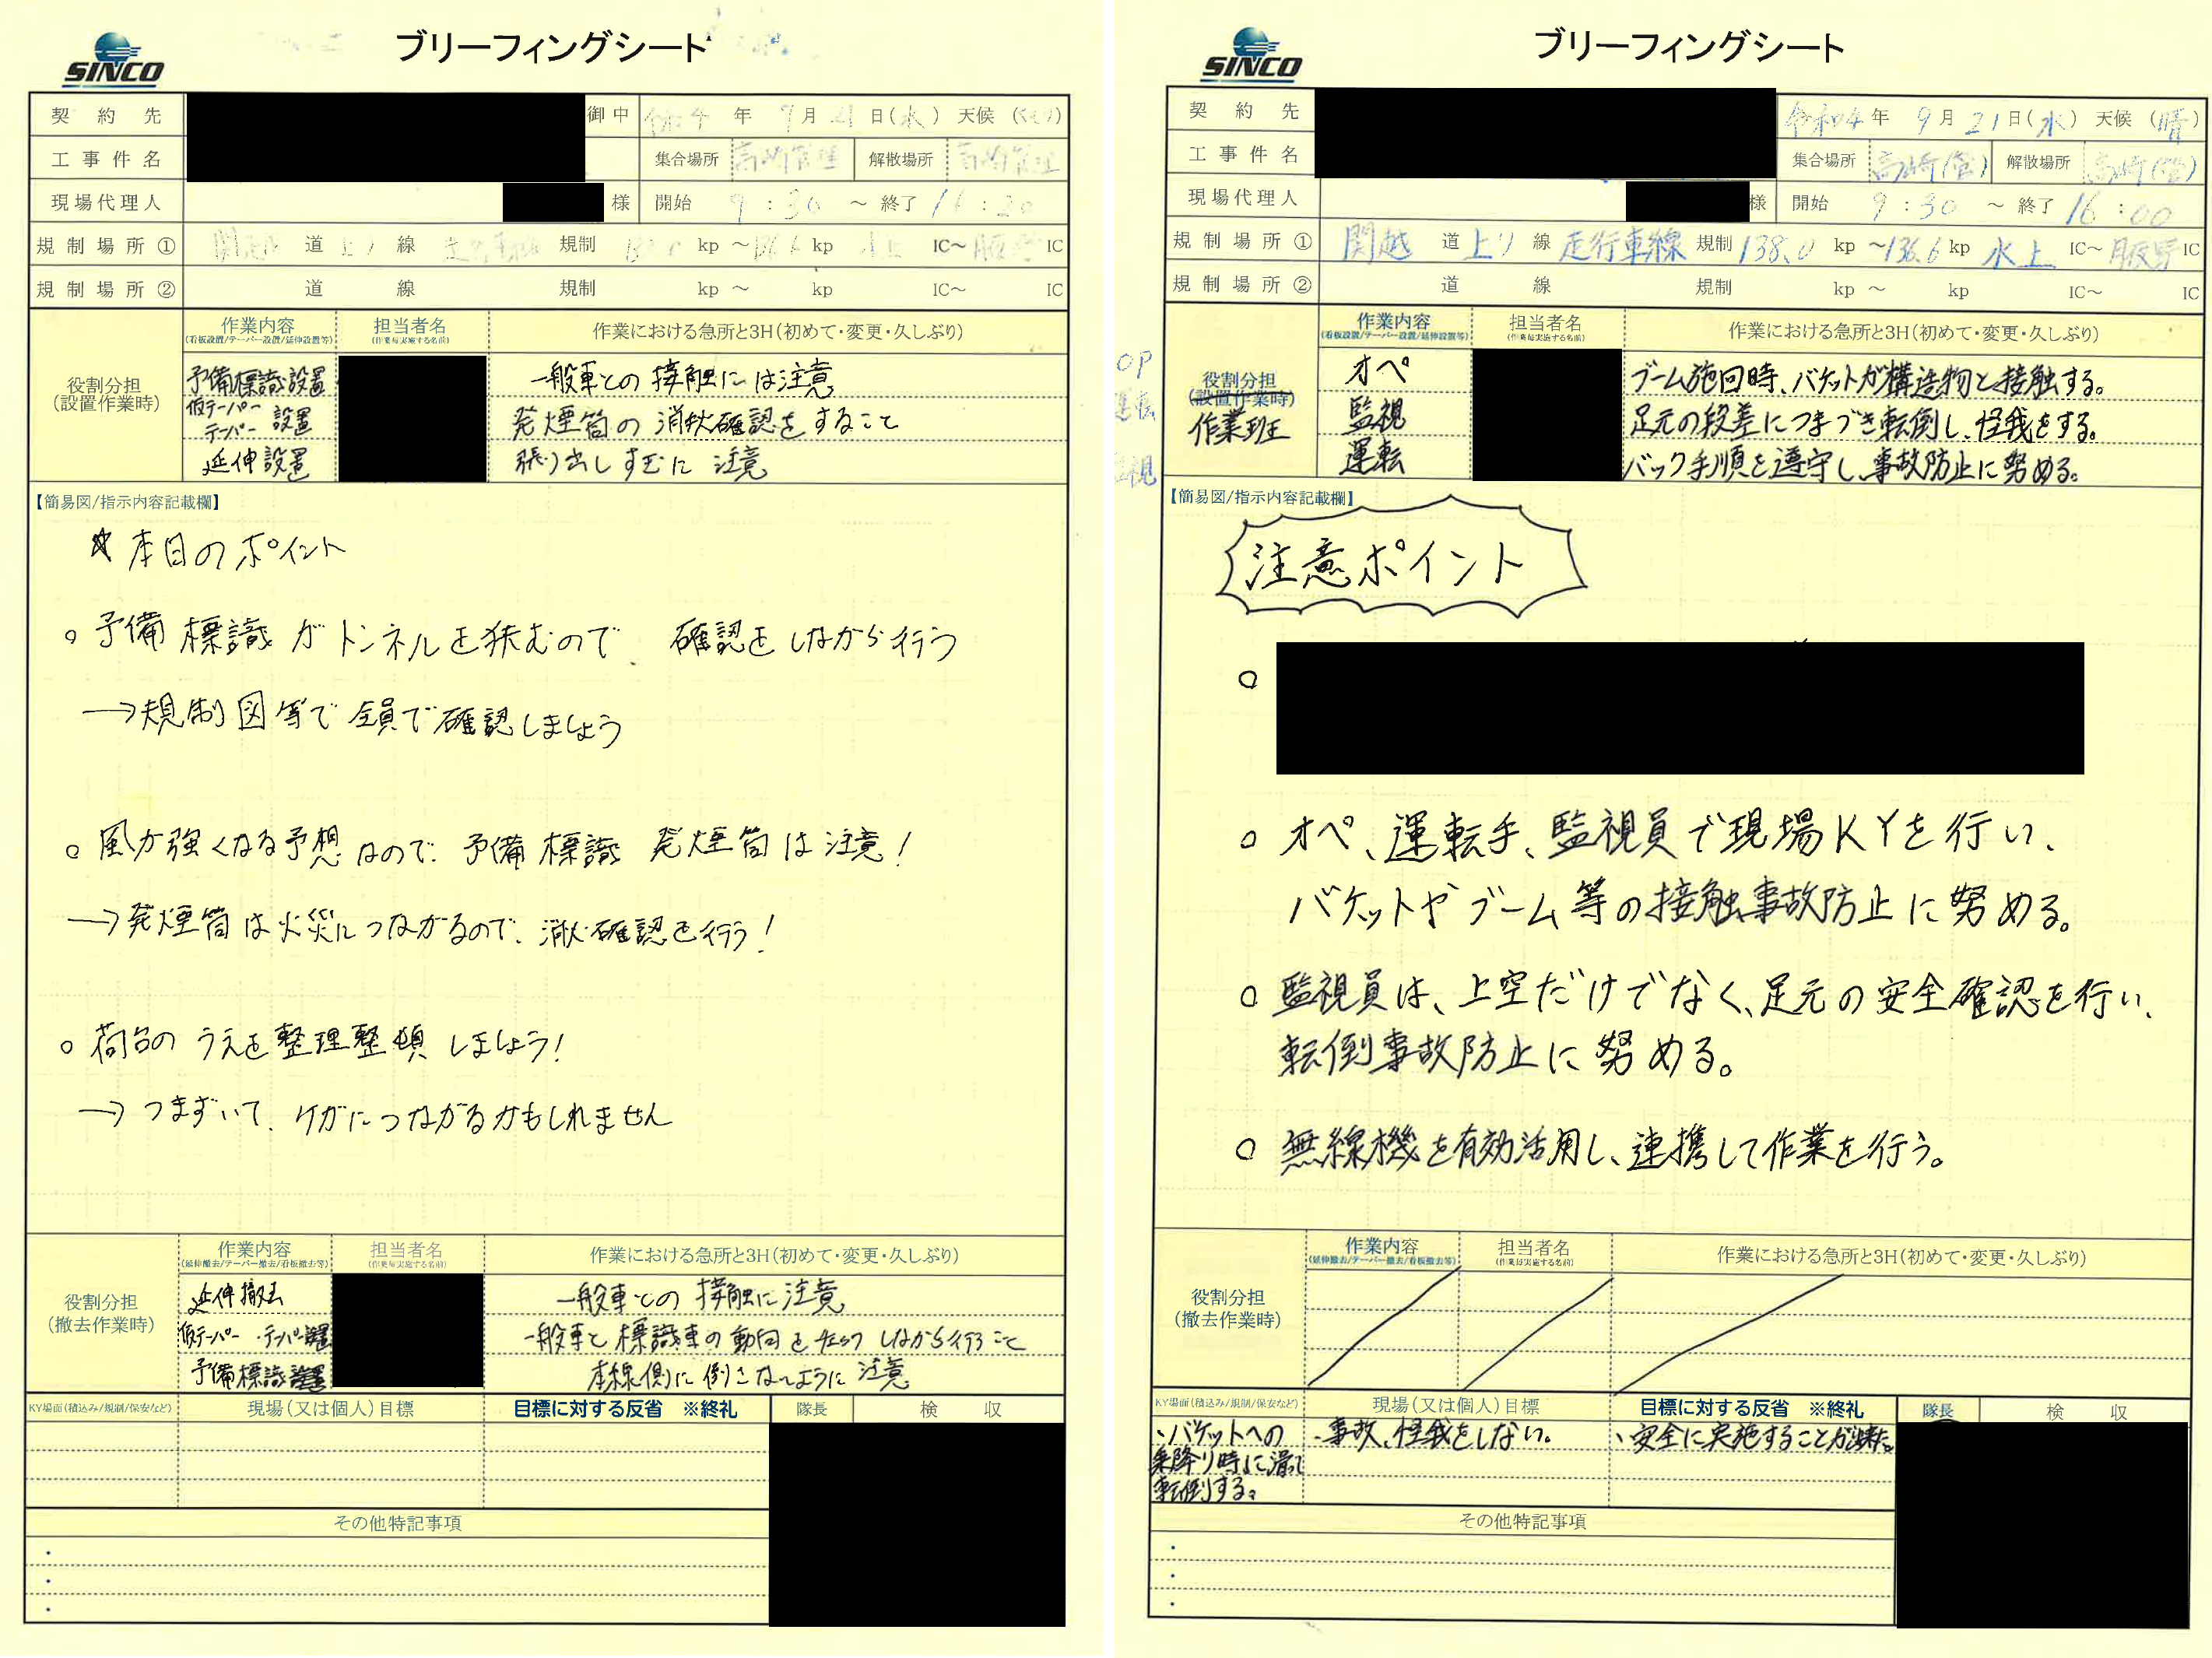 SINCO
ブリーフィングシート
契約先
御中
年 9月21日(水) 天候
工事件名
集合場所
解散場所
現場代理人
様
開始 9:30 ～ 終了
規制場所①
道 上り 線 規制 kp ～ kp 水上 IC～ IC
規制場所②
道 線 規制 kp ～ kp IC～ IC
役割分担
(設置作業時)
作業内容
(看板設置/テーパー設置/延伸設置等)
担当者名
(作業毎実施する名前)
作業における急所と3H(初めて・変更・久しぶり)
予備標識設置
一般車との接触には注意
仮テーパー
テーパー 設置
発煙筒の消火確認をすること
延伸設置
張り出しすぎに 注意
【簡易図/指示内容記載欄】
☆本日のポイント
○ 予備標識がトンネルを挟むので、確認をしながら行う
→規制図等で全員で確認しましょう
○ 風が強くなる予想なので、予備標識 発煙筒は注意!
→発煙筒は火災につながるので、消火確認を行う!
○ 荷台のうえを整理整頓しましょう!
→つまずいて、ケガにつながるかもしれません
役割分担
(撤去作業時)
作業内容
(延伸撤去/テーパー撤去/看板撤去等)
担当者名
(作業毎実施する名前)
作業における急所と3H(初めて・変更・久しぶり)
延伸撤去
一般車との接触に注意
仮テーパー・テーパー
一般車と標識車の動向をチェックしながら行うこと
予備標識
本線側に倒さないように注意
KY場面(積込み/規制/保安など)
現場(又は個人)目標
目標に対する反省 ※終礼
隊長
検収
その他特記事項
・
・
・
SINCO
ブリーフィングシート
契約先
令和4年 9月21日(水) 天候(晴)
工事件名
集合場所 高崎(管)
解散場所 高崎(管)
現場代理人
様
開始 9:30 ～ 終了 16:00
規制場所①
関越 道 上り 線 走行車線 規制 138.0 kp ～136.6 kp 水上 IC～ IC
規制場所②
道 線 規制 kp ～ kp IC～ IC
役割分担
(設置作業時)
作業班
作業内容
(看板設置/テーパー設置/延伸設置等)
担当者名
(作業毎実施する名前)
作業における急所と3H(初めて・変更・久しぶり)
オペ
ブーム施回時、バケットが構造物と接触する。
監視
足元の段差につまづき転倒し、怪我をする。
運転
バック手順を遵守し、事故防止に努める。
OP
運転
監視
【簡易図/指示内容記載欄】
注意ポイント
○
○ オペ、運転手、監視員で現場KYを行い、
バケットやブーム等の接触事故防止に努める。
○ 監視員は、上空だけでなく、足元の安全確認を行い、
転倒事故防止に努める。
○ 無線機を有効活用し、連携して作業を行う。
役割分担
(撤去作業時)
作業内容
(延伸撤去/テーパー撤去/看板撤去等)
担当者名
(作業毎実施する名前)
作業における急所と3H(初めて・変更・久しぶり)
KY場面(積込み/規制/保安など)
現場(又は個人)目標
目標に対する反省 ※終礼
隊長
検収
・バケットへの
乗降り時に滑って
転倒する。
・事故、怪我をしない。
・安全に実施することが出来た。
その他特記事項
・
・
・